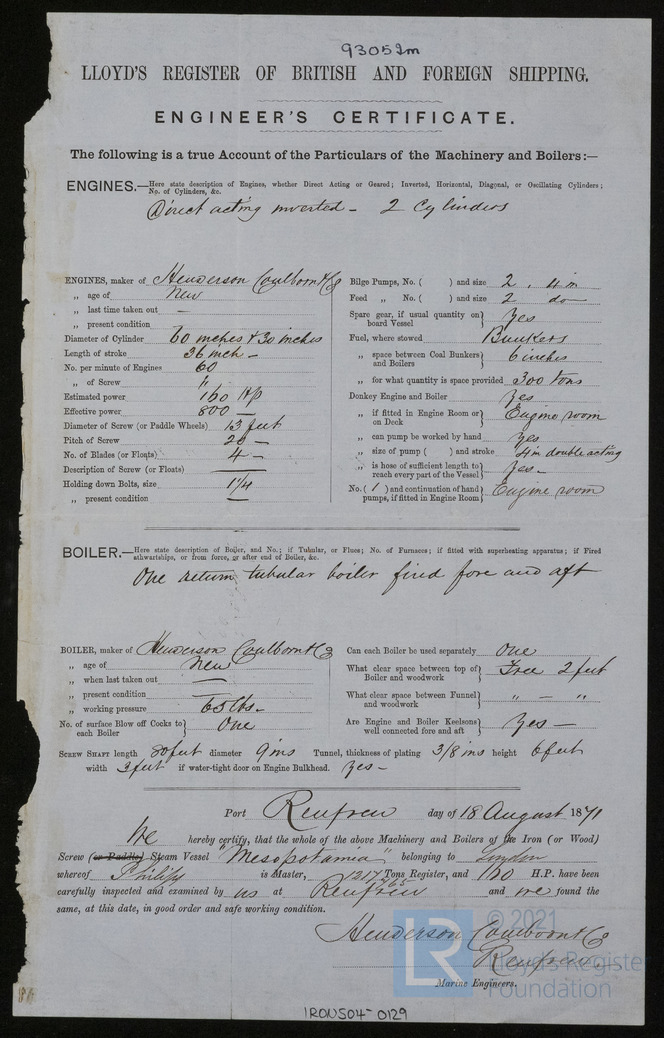 93052m
LLOYD'S REGISTER OF BRITISH AND FOREIGN SHIPPING.
ENGINEER'S CERTIFICATE.
The following is a true Account of the Particulars of the Machinery and Boilers:—
ENGINES.—Here state description of Engines, whether Direct Acting or Geared; Inverted, Horizontal, Diagonal, or Oscillating Cylinders;
No. of Cylinders, &c.
Direct acting inverted - 2 Cylinders
ENGINES, maker of Henderson Coulborn & Co
„ age of New
„ last time taken out —
„ present condition
Diameter of Cylinder 60 inches & 30 inches
Length of stroke 36 inch -
No. per minute of Engines 60
„ of Screw "
Estimated power 160 HP
Effective power 800 —
Diameter of Screw (or Paddle Wheels) 13 feet
Pitch of Screw 20 —
No. of Blades (or Floats) 4 —
Description of Screw (or Floats) —
Holding down Bolts, size 1 1/4
„ present condition —
Bilge Pumps, No. ( ) and size 2 . 4 in
Feed „ No. ( ) and size 2 do
Spare gear, if usual quantity on board Vessel} Yes
Fuel, where stowed Bunkers
„ space between Coal Bunkers and Boilers} 6 inches
„ for what quantity is space provided 300 tons
Donkey Engine and Boiler Yes
„ if fitted in Engine Room or on Deck} Engine room
„ can pump be worked by hand Yes
„ size of pump ( ) and stroke 4 in double acting
„ is hose of sufficient length to reach every part of the Vessel} Yes -
No. ( 1 ) and continuation of hand pumps, if fitted in Engine Room} Engine room
BOILER.—Here state description of Boiler, and No.; if Tubular, or Flues; No. of Furnaces; if fitted with superheating apparatus; if Fired
athwartships, or from force, or after end of Boiler, &c.
One return tubular boiler fired fore and aft
BOILER, maker of Henderson Coulborn & Co
„ age of New
„ when last taken out —
„ present condition —
„ working pressure 65 lbs -
No. of surface Blow off Cocks to each Boiler} One
Can each Boiler be used separately One
What clear space between top of Boiler and woodwork} Free 2 feet
What clear space between Funnel and woodwork} " — "
Are Engine and Boiler Keelsons well connected fore and aft} Yes —
SCREW SHAFT length 80 feet diameter 9 ins Tunnel, thickness of plating 3/8 ins height 6 feet
width 3 feet if water-tight door on Engine Bulkhead. Yes -
Port Renfrew day of 18 August 1871
We hereby certify, that the whole of the above Machinery and Boilers of the Iron (or Wood)
Screw (or Paddle) Steam Vessel "Mesopotamia" belonging to London
whereof Philip is Master, 1217 Tons Register, and 160 H.P. have been
carefully inspected and examined by us at Renfrew and we found the
same, at this date, in good order and safe working condition.
Henderson Coulborn & Co
Renfrew.
Marine Engineers.
LR
© 2021
Lloyd's Register
Foundation
IRONS04-0129